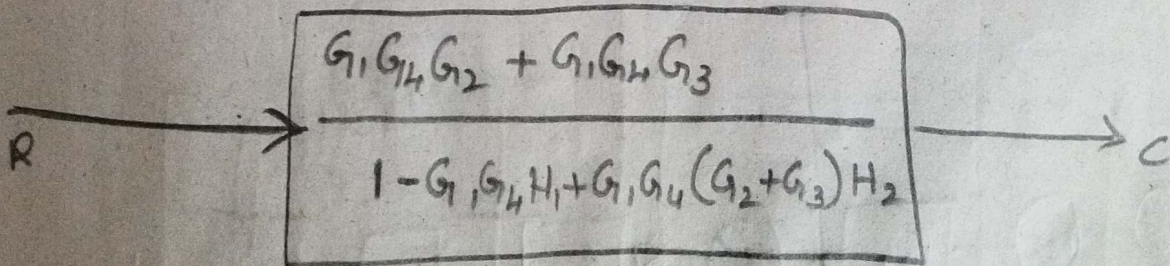 G₁G₄G₂ + G₁G₄G₃
R
C
1-G₁G₄H₁+G₁G₄(G₂+G₃)H₂